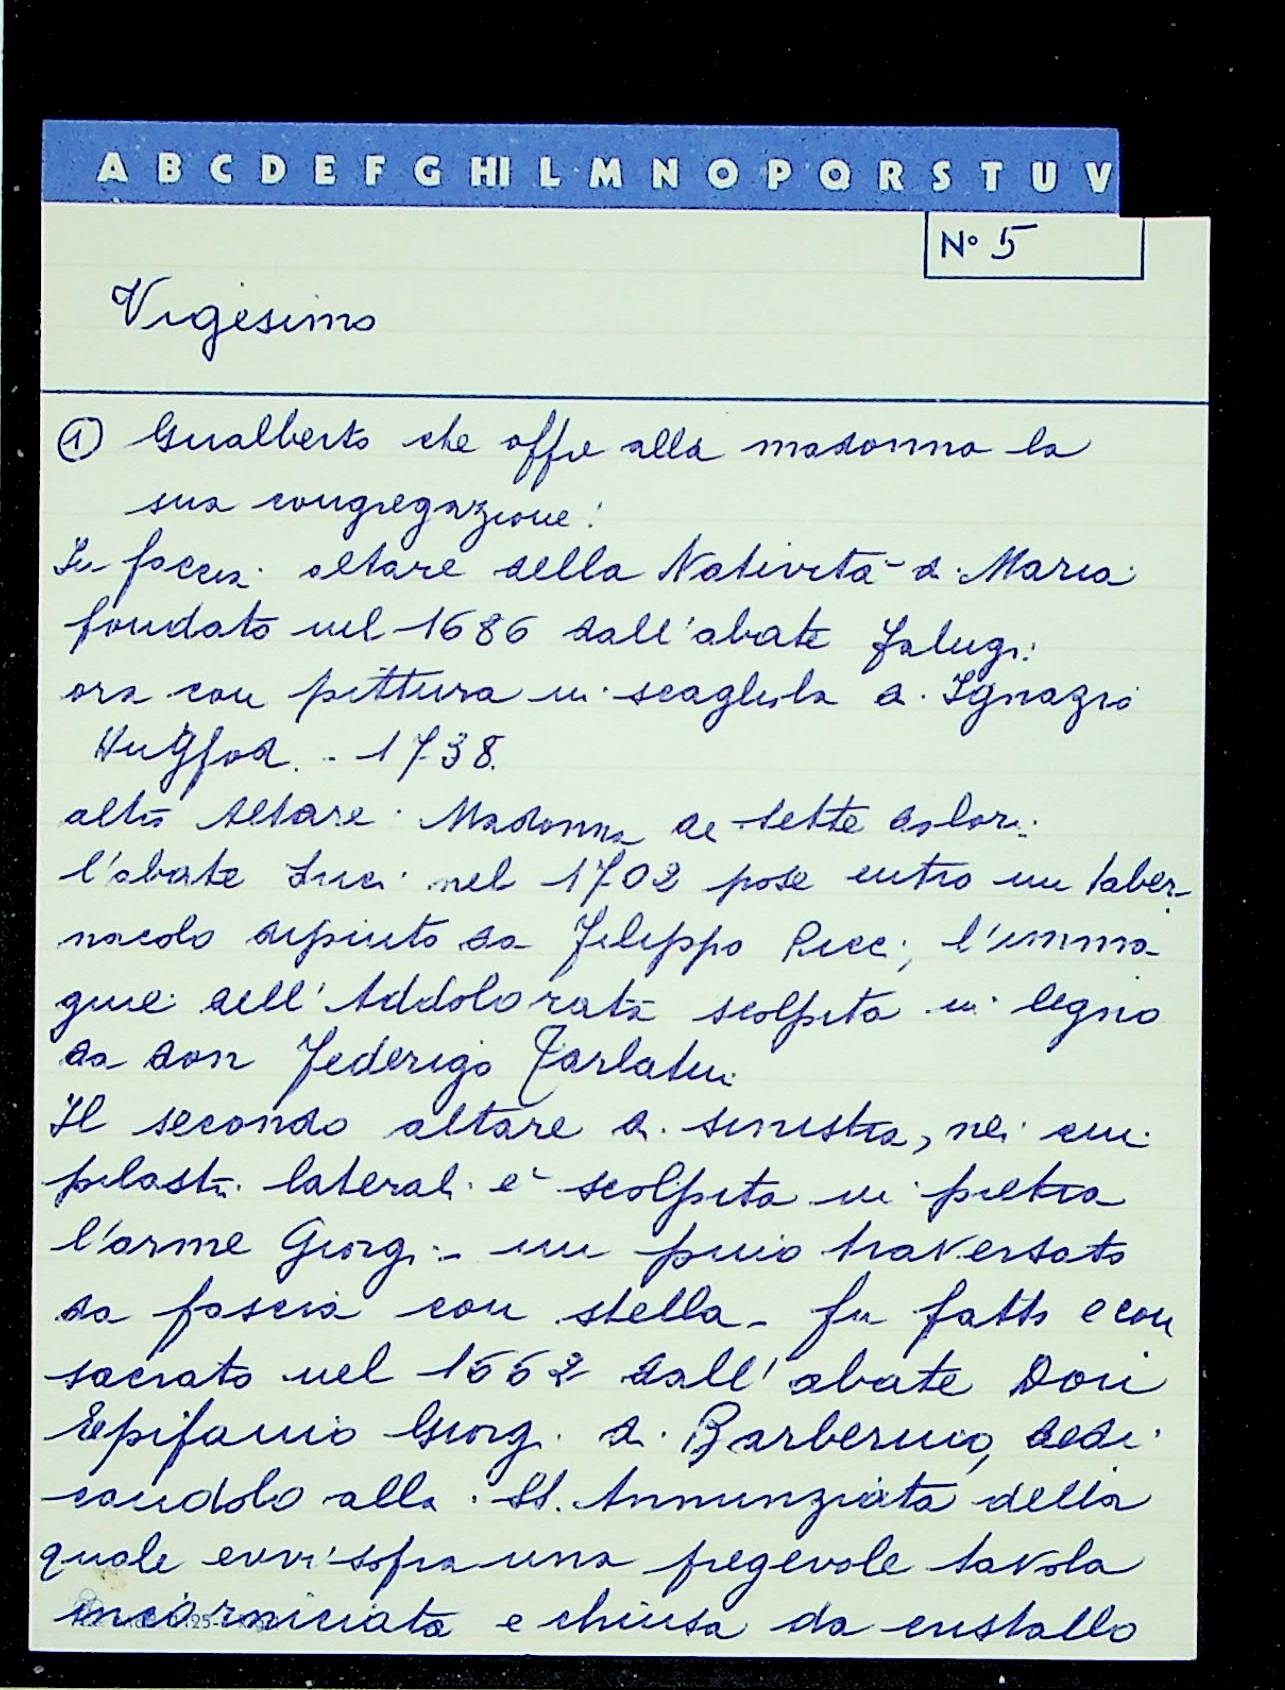 A B C D E F G HI L M N O P Q R S T U V
N° 5
Vigesimo
① Gualberto che offre alla madonna la
sua congregazione:
In faccia altare della Natività di Maria
fondato nel 1686 dall'abate Falugi:
ora con pittura in scagliola di Ignazio
Hugford. - 1738.
altro Altare. Madonna de sette dolori:
l'abate Luci nel 1702 pose entro un taber-
nacolo dipinto da Filippo Ricci, l'imma-
gine dell'Addolorata scolpita in legno
da don Federigo Tarlatini
Il secondo altare di sinistra, nei cui
pilastri laterali è scolpita in pietra
l'arme Giorgi - un pino traversato
da fascia con stella - fu fatto e con
sacrato nel 1662 dall'abate Don
Epifanio Giorgi di Barberino, dedi
candolo alla SS. Annunziata della
quale evvi sopra una pregevole tavola
incorniciata e chiusa da cristallo